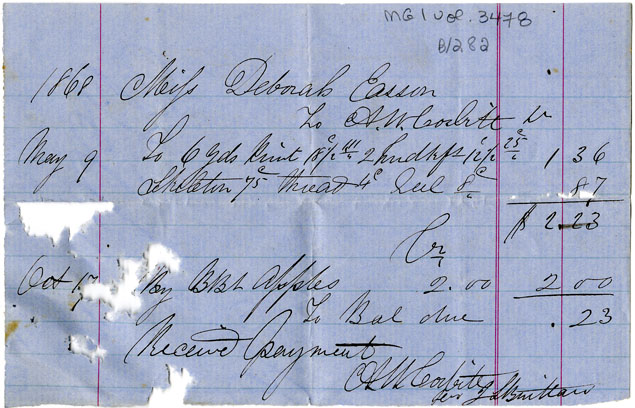 MG 1 Vol. 3478
B/282
1868 Miss Deborah Easson
To A.W. Corbitt Dr
May 9 To 6 yds Print 18½ 111 2 hndkfs 12½ 25c 1 36
Skeleton 75c thread 4c Reel 8c 87
$ 2.23
Cr
Oct 17 By Bbl apples 2.00 2 00
To Bal due .23
Received payment
A.W. Corbitt
per